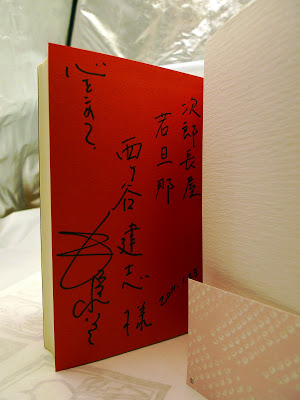 次郎長屋
若旦那
西ヶ谷建志様
心をこめて、